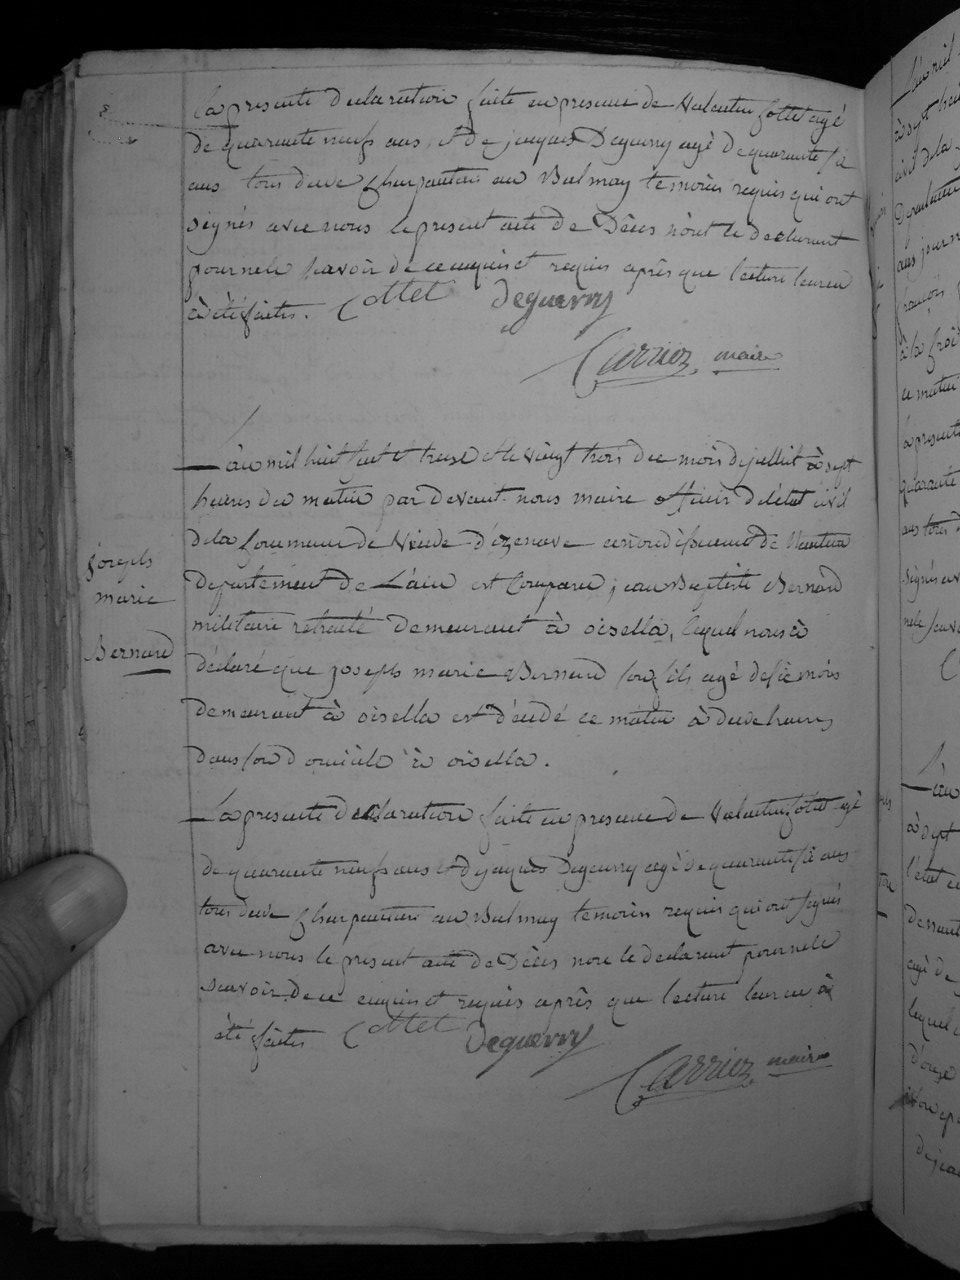 la presente declaration faite en presence de Valentin Cottet agé
de quarante neufs ans, et de jaques Deguerry agé de quarante six
ans tous deux Charpentiers au Balmay temoins requis qui ont
signés avec nous le present acte de Décès nont le declarant
pour ne le savoir de ce enquis et requis après que lecture leur en
à été faites. Cottet Deguerry
Carrier, maire
L'an mil huit cent et treize et le vingt trois du mois de juillit à sept
heures du matin par devant nous maire officier de létat civil
de la Commune de Vieude d'izenave arrondissement de Nantua
departement de L'ain est Comparu jean Baptiste Bernard
militaire retraité demeurant à oisella, lequel nous à
déclaré que joseph marie Bernard son fils agé de six mois
demeurant à oisella est décudé ce matin à deux heures
dans son domicile à oisella.
joseph
marie
Bernard
La presente declaration faite en presence de Valentin Cottet agé
de quarante neufs ans et de jaques Deguerry agé de quarante six ans
tous deux Charpentiers au Balmay temoins requis qui ont signés
avec nous le present acte de Décès non le declarant pour ne le
savoir de ce enquis et requis après que lecture leur en à
été faites Cottet Deguerry
Carrier, maire